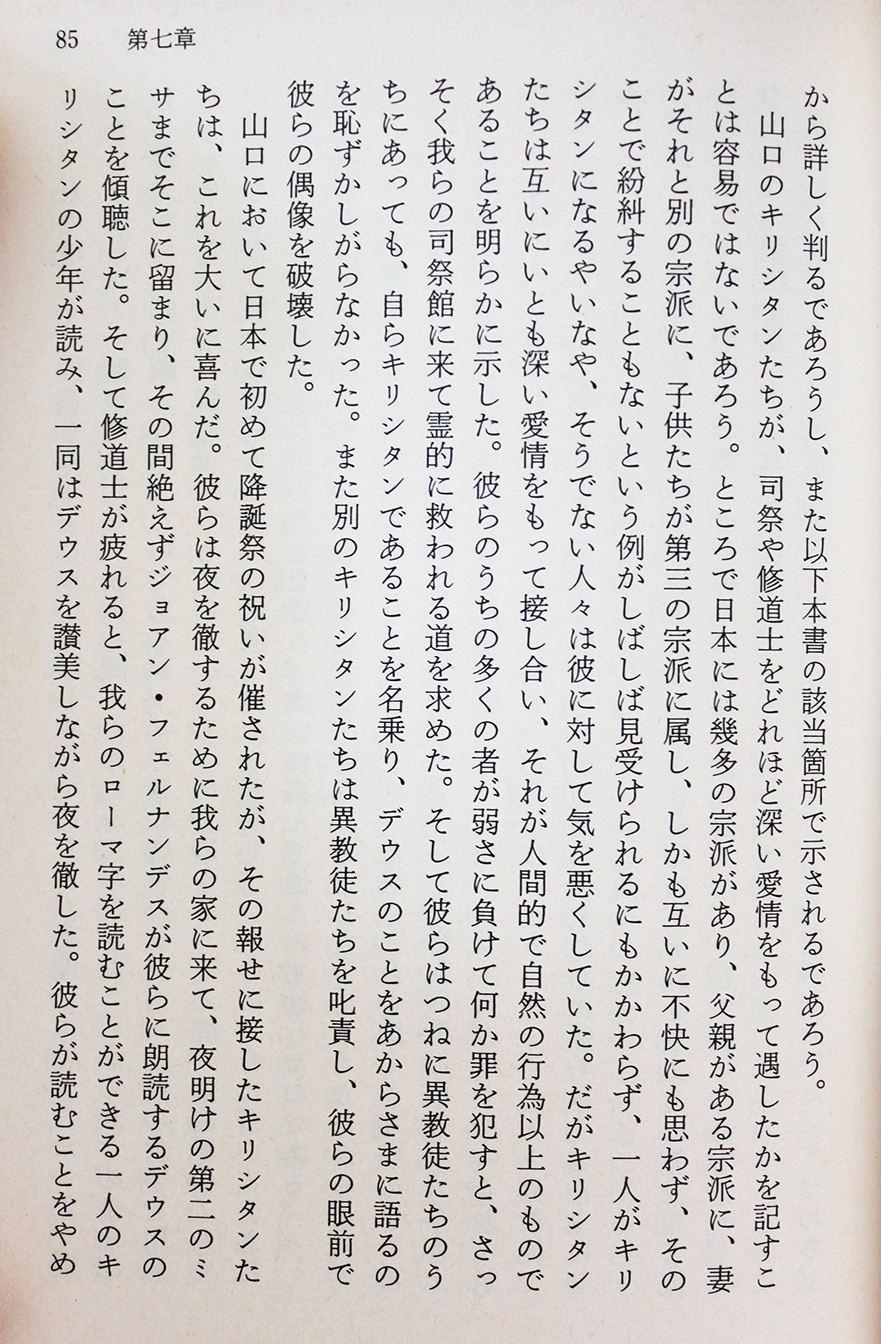 85　第七章
から詳しく判るであろうし、また以下本書の該当箇所で示されるであろう。
　山口のキリシタンたちが、司祭や修道士をどれほど深い愛情をもって遇したかを記すこ
とは容易ではないであろう。ところで日本には幾多の宗派があり、父親がある宗派に、妻
がそれと別の宗派に、子供たちが第三の宗派に属し、しかも互いに不快にも思わず、その
ことで紛糾することもないという例がしばしば見受けられるにもかかわらず、一人がキリ
シタンになるやいなや、そうでない人々は彼に対して気を悪くしていた。だがキリシタン
たちは互いにいとも深い愛情をもって接し合い、それが人間的で自然の行為以上のもので
あることを明らかに示した。彼らのうちの多くの者が弱さに負けて何か罪を犯すと、さっ
そく我らの司祭館に来て霊的に救われる道を求めた。そして彼らはつねに異教徒たちのう
ちにあっても、自らキリシタンであることを名乗り、デウスのことをあからさまに語るの
を恥ずかしがらなかった。また別のキリシタンたちは異教徒たちを叱責し、彼らの眼前で
彼らの偶像を破壊した。
　山口において日本で初めて降誕祭の祝いが催されたが、その報せに接したキリシタンた
ちは、これを大いに喜んだ。彼らは夜を徹するために我らの家に来て、夜明けの第二のミ
サまでそこに留まり、その間絶えずジョアン・フェルナンデスが彼らに朗読するデウスの
ことを傾聴した。そして修道士が疲れると、我らのローマ字を読むことができる一人のキ
リシタンの少年が読み、一同はデウスを讃美しながら夜を徹した。彼らが読むことをやめ